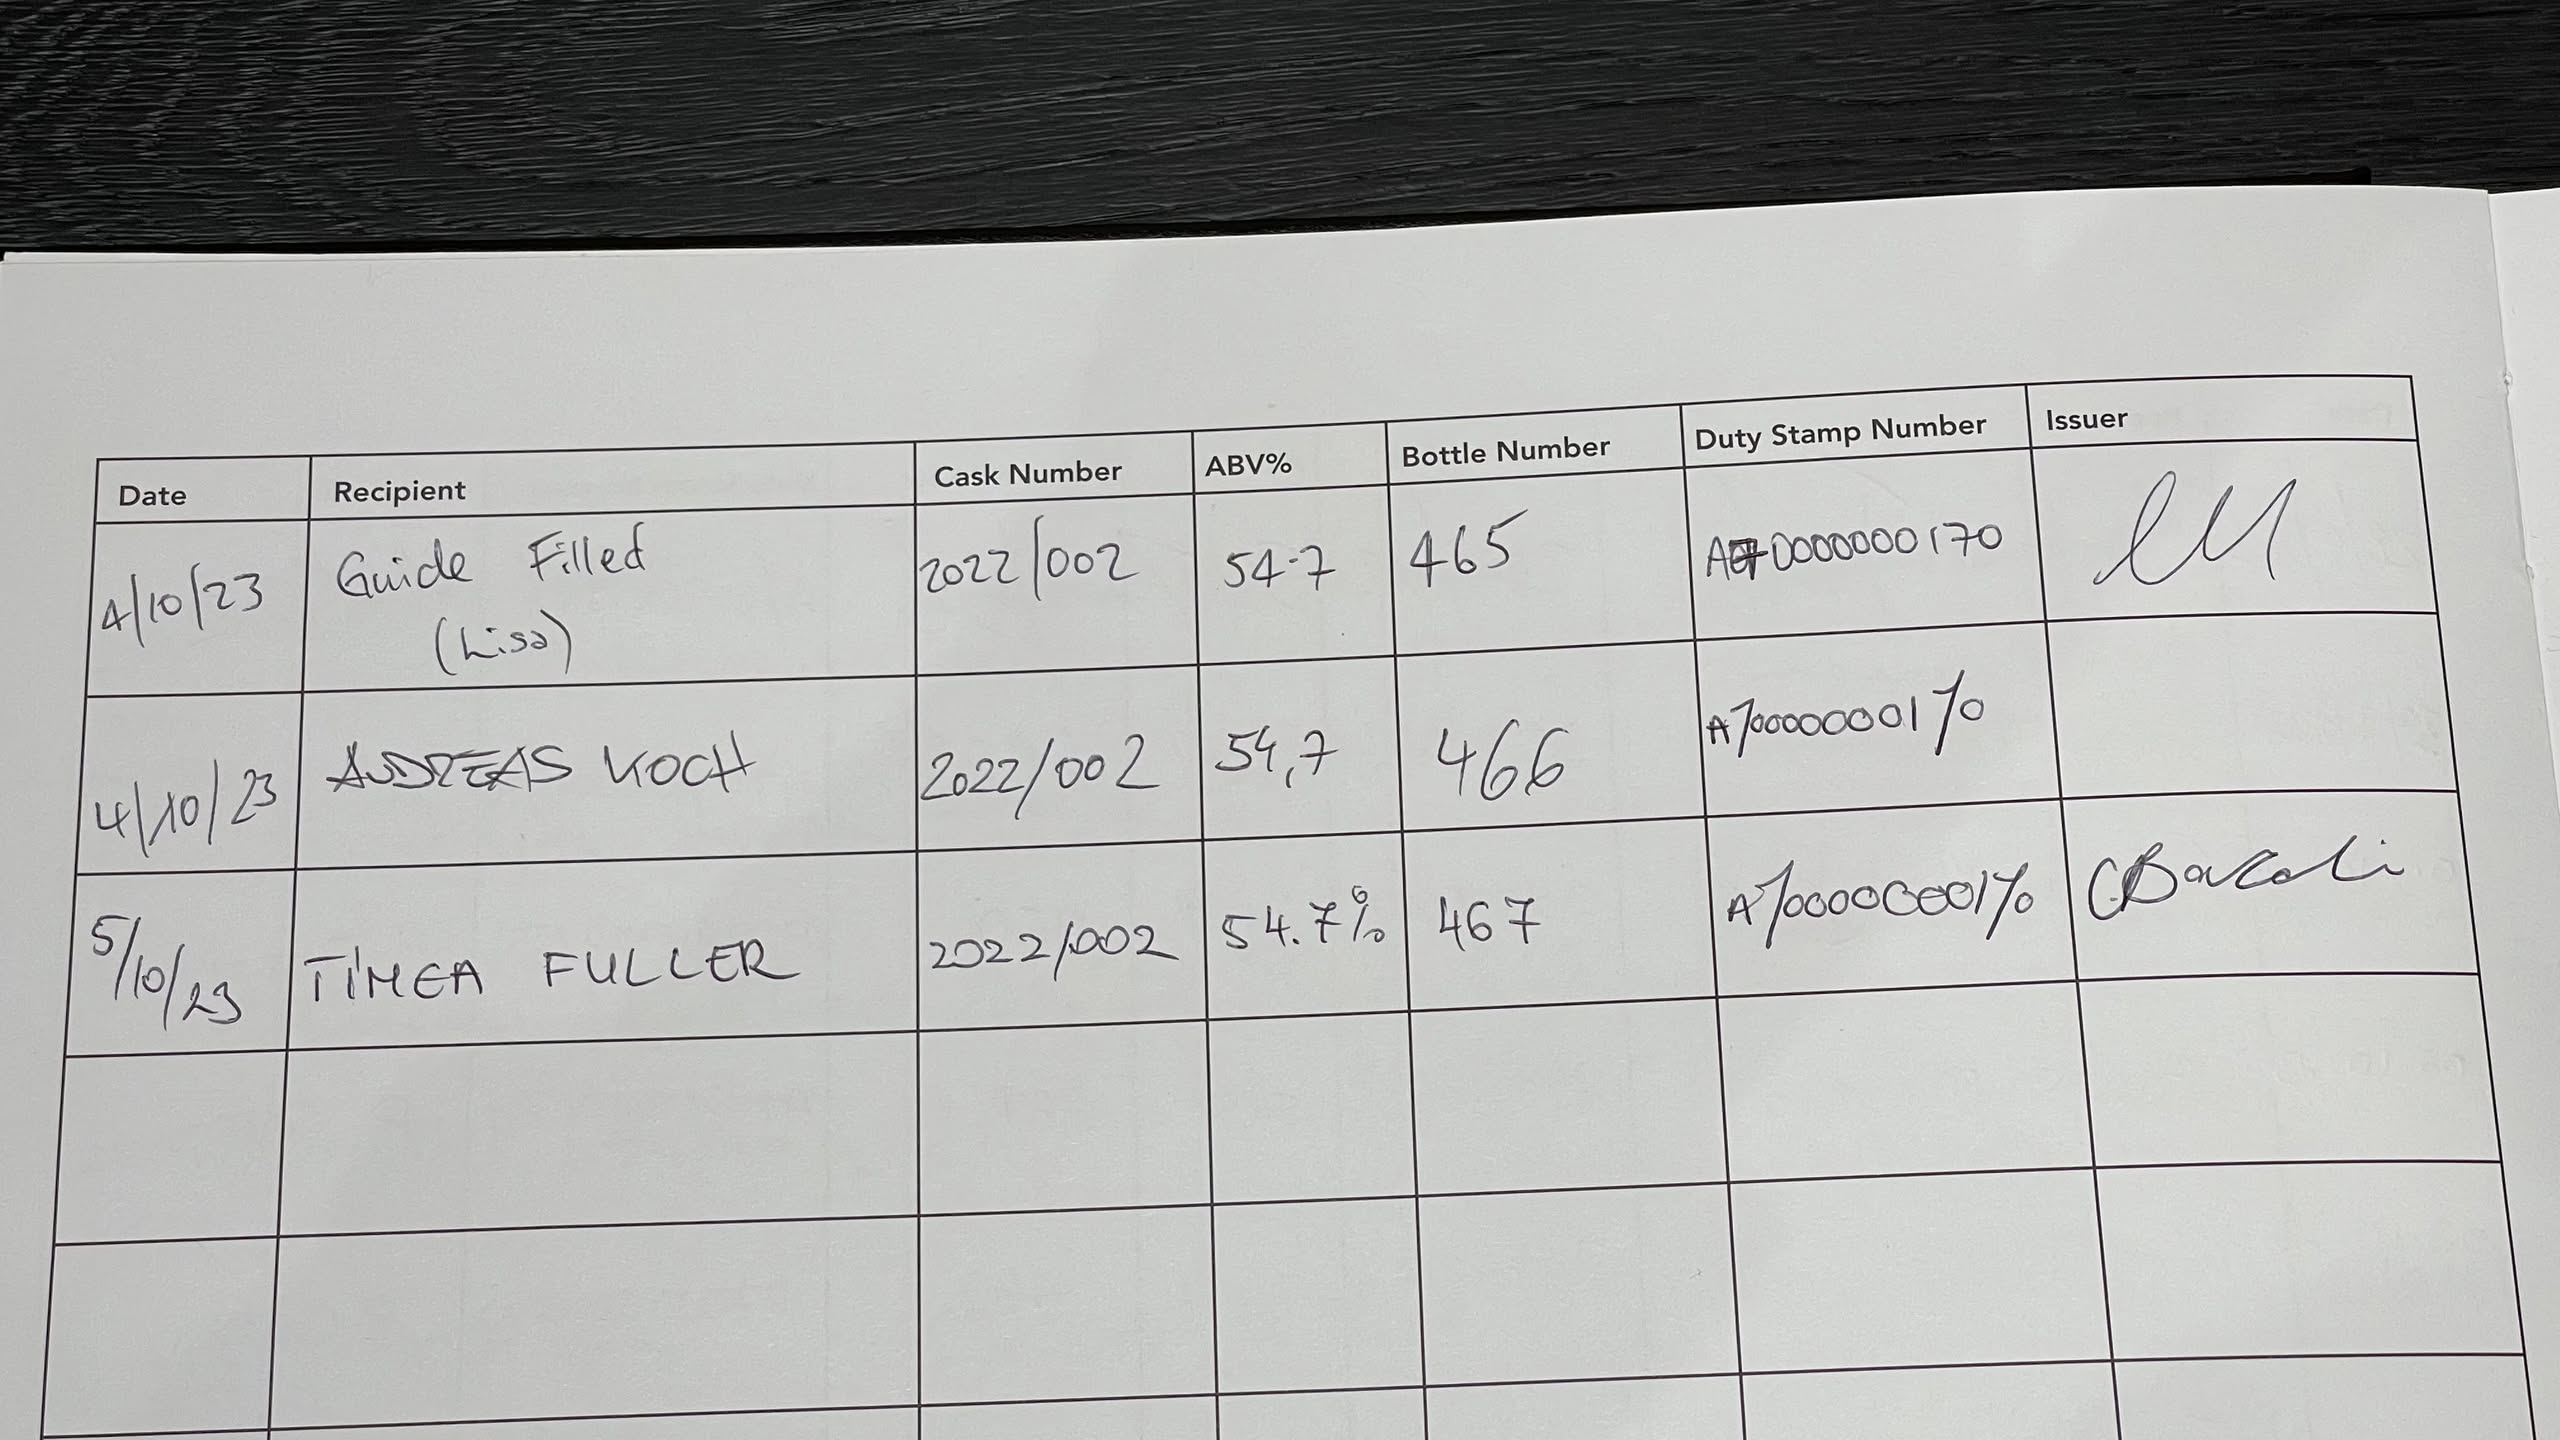 Date Recipient Cask Number ABV% Bottle Number Duty Stamp Number Issuer
4/10/23 Guide Filled 2022/002 54.7 465 0000000170
(Lisa)
4/10/23 ANDREAS KOCH 2022/002 54,7 466
5/10/23 TÍMEA FULLER 2022/002 54.7% 467